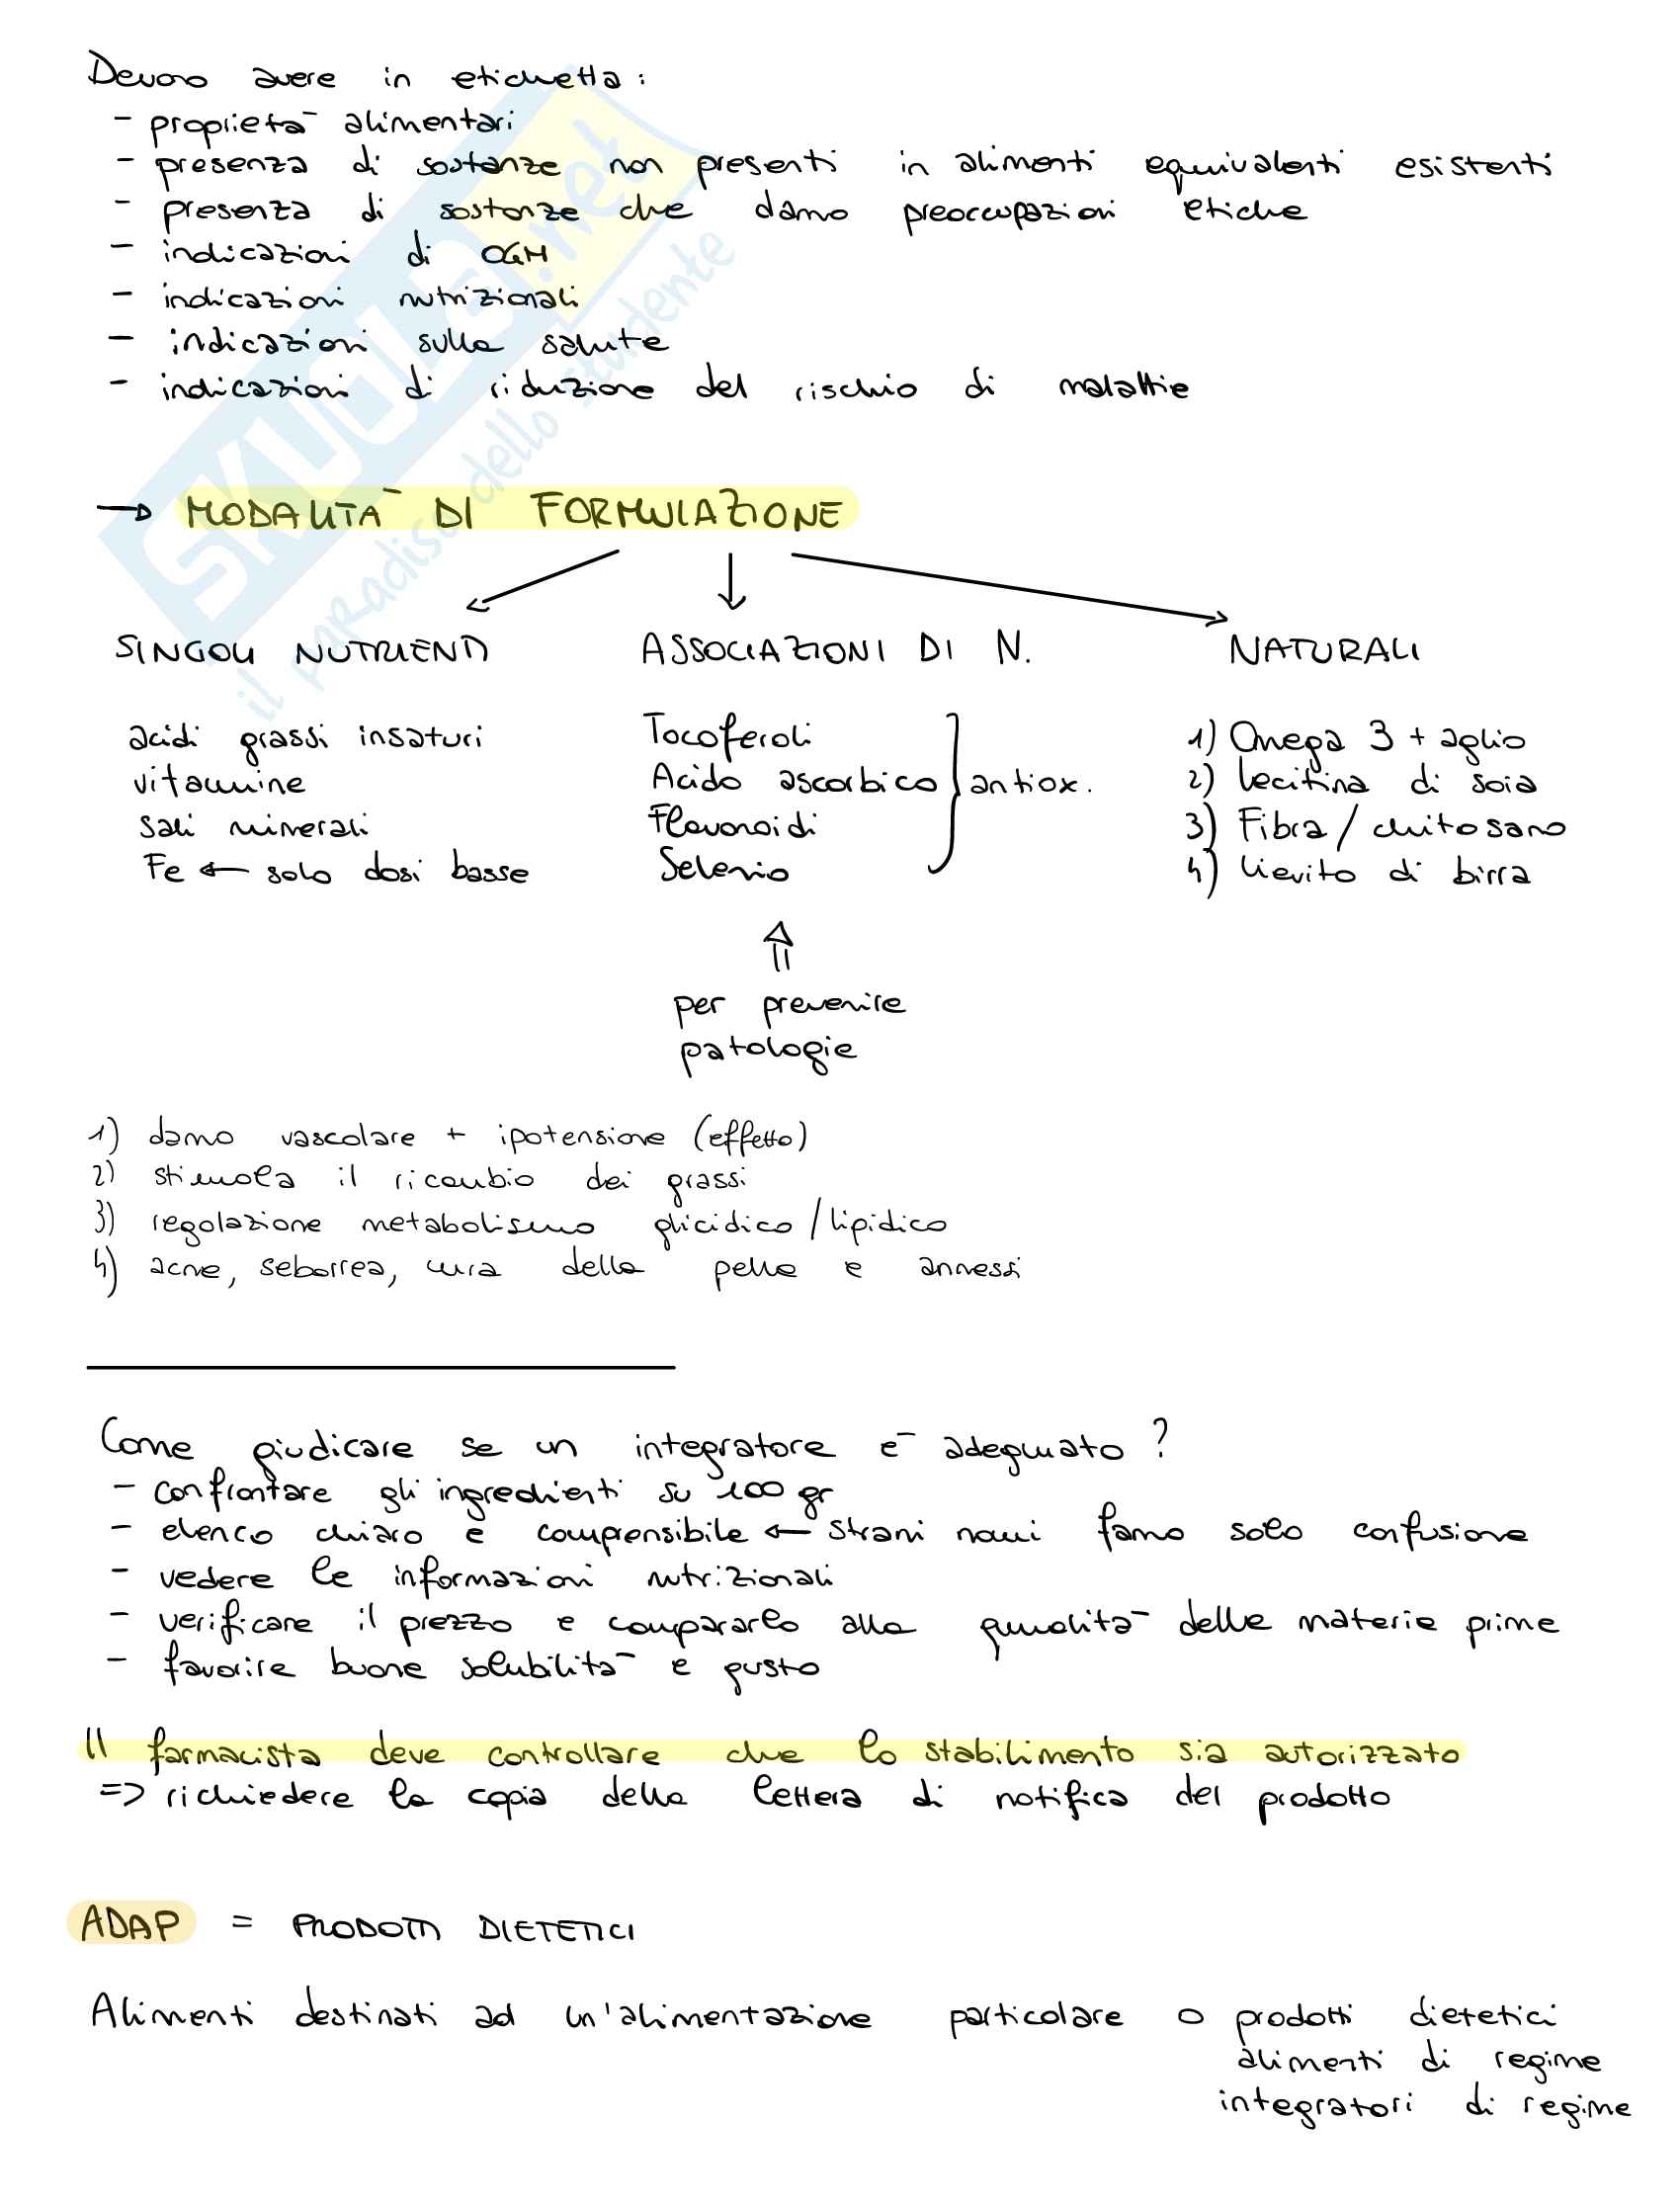 Devono avere in etichetta:
- proprietà alimentari
- presenza di sostanze non presenti in alimenti equivalenti esistenti
- presenza di sostanze che danno preoccupazioni etiche
- indicazioni di OGM
- indicazioni nutrizionali
- indicazioni sulla salute
- indicazioni di riduzione del rischio di malattie
→ MODALITÀ DI FORMULAZIONE
SINGOLI NUTRIENTI
acidi grassi insaturi
vitamine
sali minerali
Fe ← solo dosi basse
ASSOCIAZIONI DI N.
Tocoferoli
Acido ascorbico
Flavonoidi
Selenio
antiox.
⇑
per prevenire
patologie
NATURALI
1) Omega 3 + aglio
2) lecitina di soia
3) Fibra / chitosano
4) lievito di birra
1) danno vascolare + ipotensione (effetto)
2) stimola il ricambio dei grassi
3) regolazione metabolismo glicidico / lipidico
4) acne, seborrea, cura della pelle e annessi
Come giudicare se un integratore è adeguato?
- confrontare gli ingredienti su 100 gr
- elenco chiaro e comprensibile ← strani nomi fanno solo confusione
- vedere le informazioni nutrizionali
- verificare il prezzo e compararlo alla qualità delle materie prime
- favorire buone solubilità e gusto
Il farmacista deve controllare che lo stabilimento sia autorizzato
=> richiedere la copia della lettera di notifica del prodotto
ADAP = PRODOTTI DIETETICI
Alimenti destinati ad un'alimentazione particolare o prodotti dietetici
alimenti di regime
integratori di regime
SKUOLA.net
il paradiso dello studente